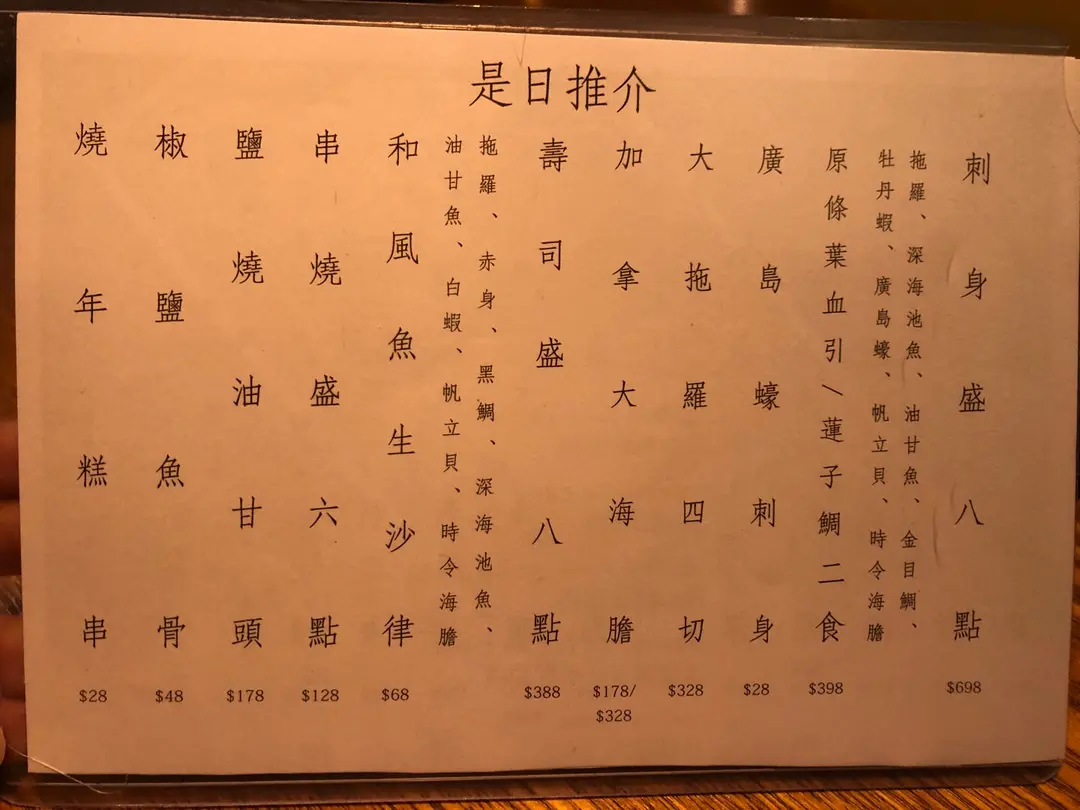 是日推介
刺身盛八點
$698
拖羅、深海池魚、油甘魚、金目鯛、
牡丹蝦、廣島蠔、帆立貝、時令海膽
原條葉血引/蓮子鯛二食
$398
廣島蠔刺身
$28
大拖羅四切
$328
加拿大海膽
$178/
$328
壽司盛八點
$388
拖羅、赤身、黑鯛、深海池魚、
油甘魚、白蝦、帆立貝、時令海膽
和風魚生沙律
$68
串燒盛六點
$128
鹽燒油甘頭
$178
椒鹽魚骨
$48
燒年糕串
$28